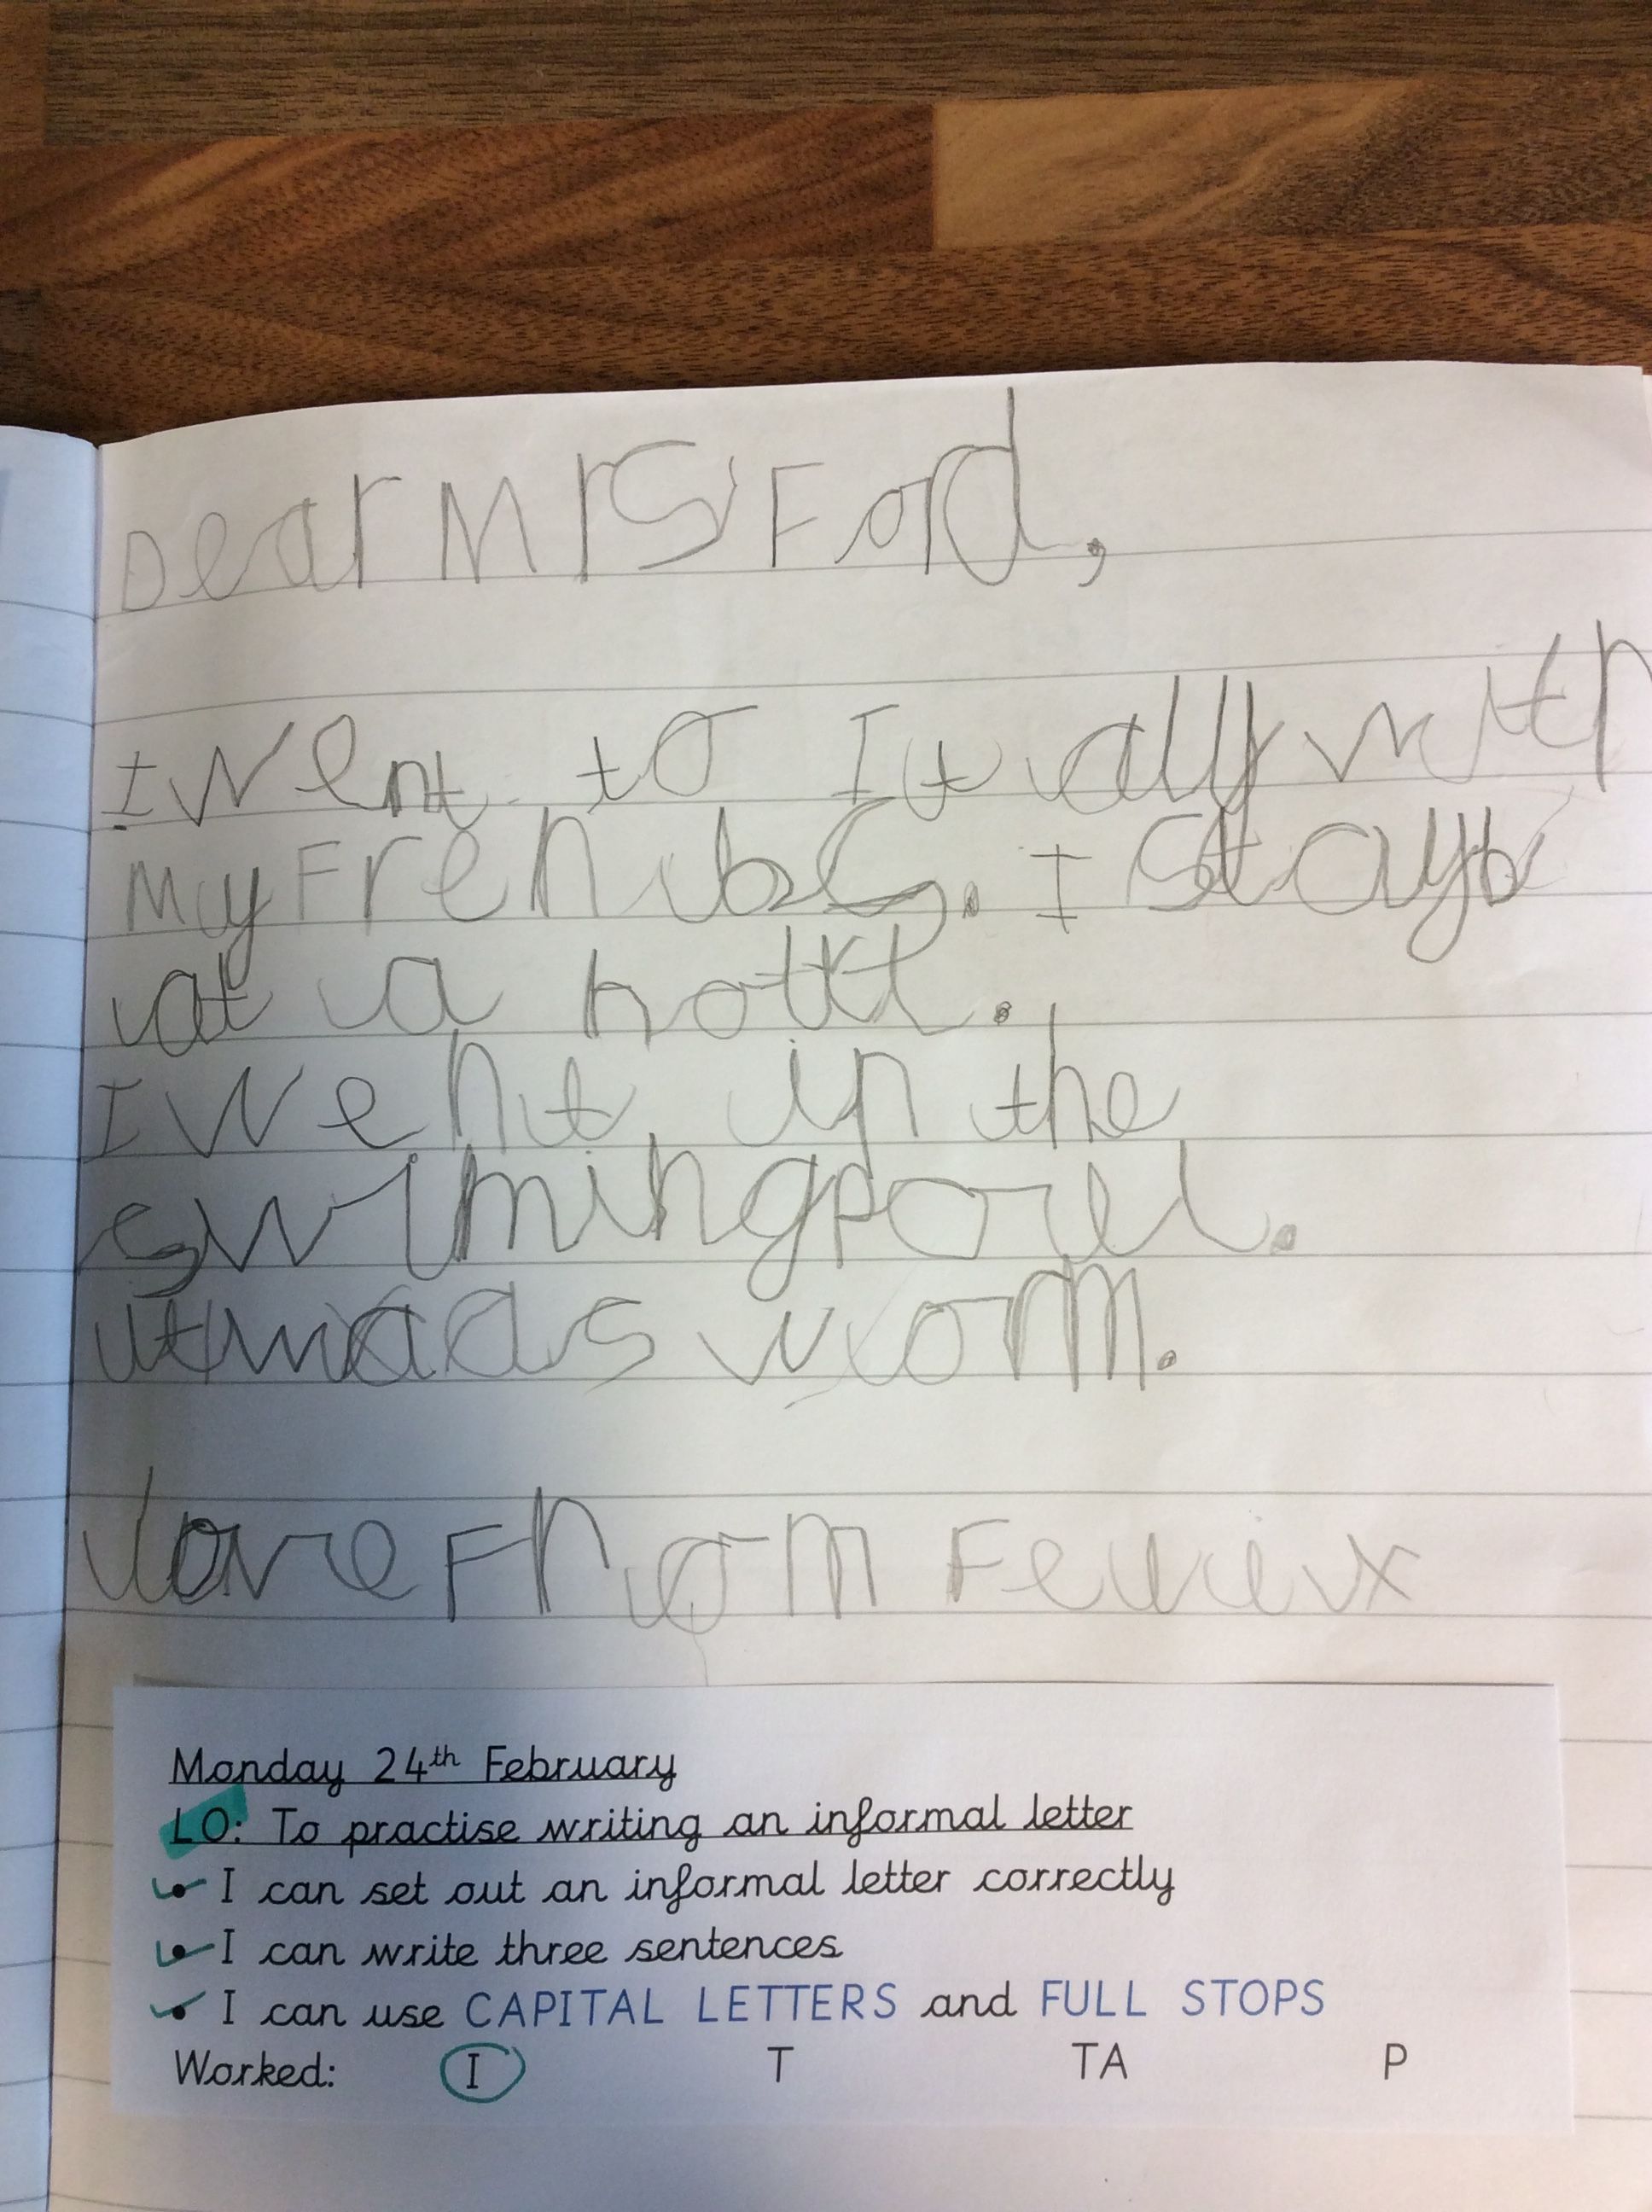 Dear Mrs Ford,
I went to Itally with
my Frenbs. I stayb
at a hottl.
I went in the
swimingpoul.
it was worm.
love From Feleix
Monday 24th February
LO: To practise writing an informal letter
• I can set out an informal letter correctly
• I can write three sentences
• I can use CAPITAL LETTERS and FULL STOPS
Worked: I T TA P